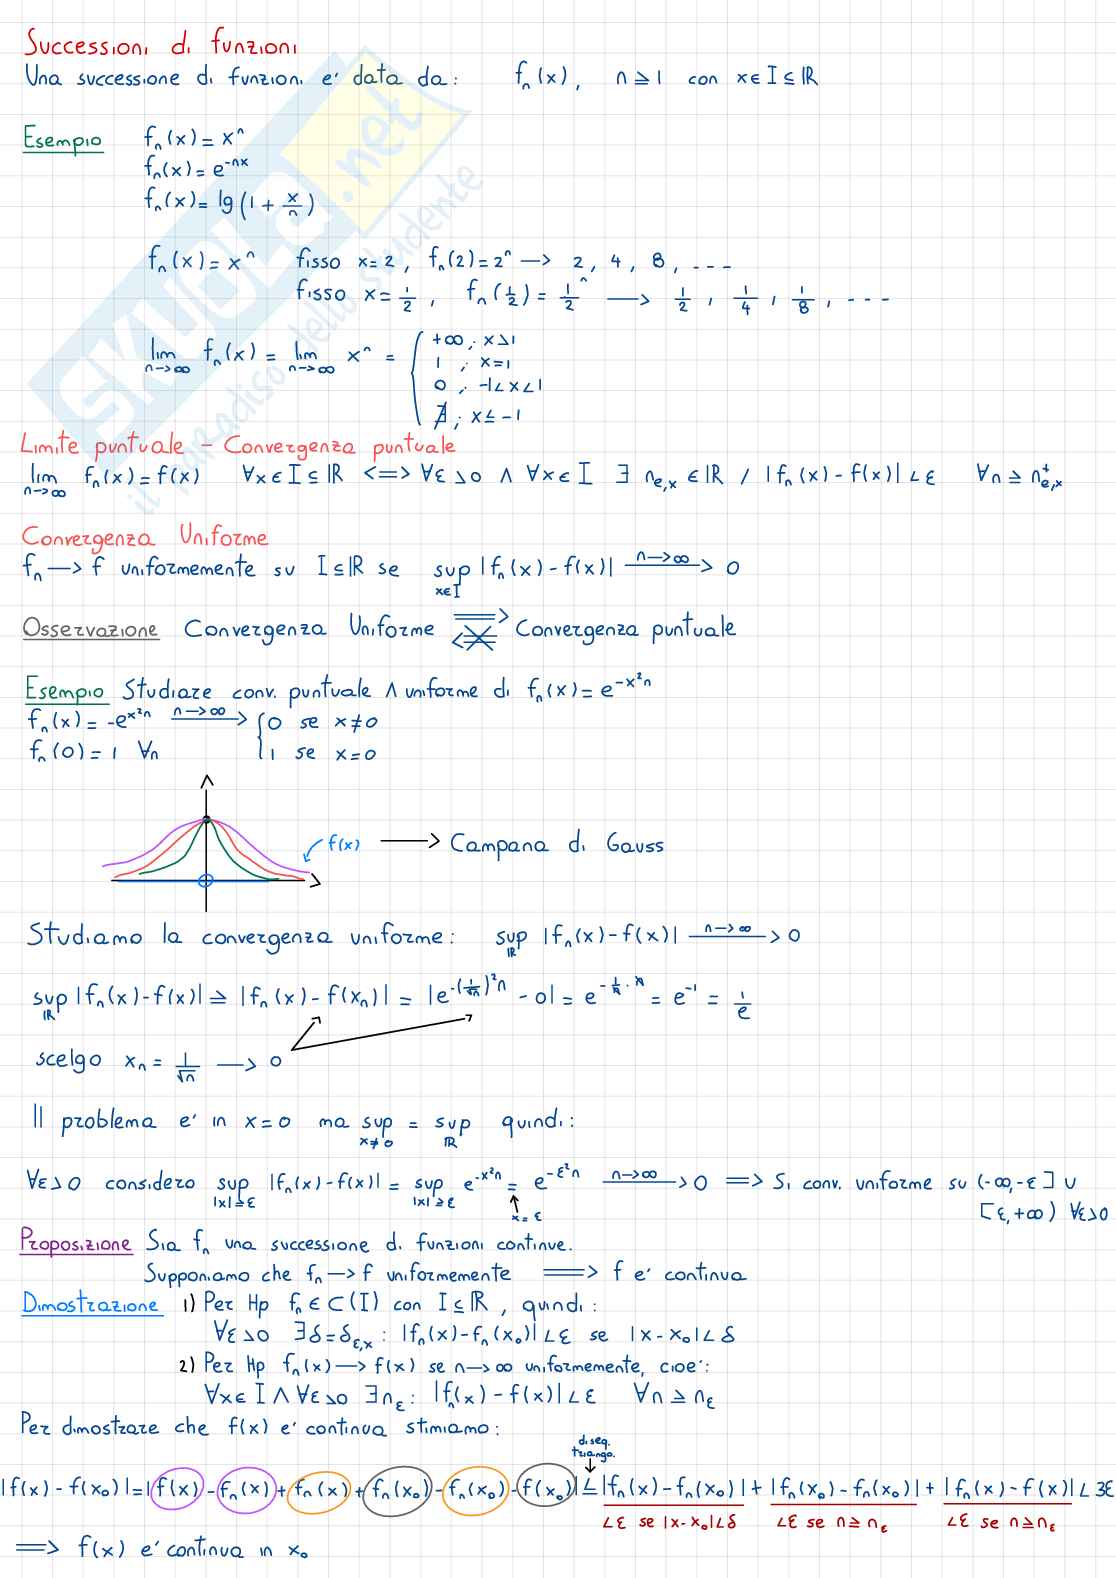 Successioni di funzioni
Una successione di funzioni e' data da: fₙ(x), n ≥ 1 con x ∈ I ⊆ ℝ
Esempio fₙ(x) = xⁿ
fₙ(x) = e^{-nx}
fₙ(x) = lg(1 + x/n)
fₙ(x) = xⁿ fisso x = 2, fₙ(2) = 2ⁿ → 2, 4, 8, ---
fisso x = 1/2, fₙ(1/2) = 1/2ⁿ → 1/2, 1/4, 1/8, ---
lim_{n→∞} fₙ(x) = lim_{n→∞} xⁿ = { +∞ ; x > 1
1 ; x = 1
0 ; -1 < x < 1
∄ ; x ≤ -1
Limite puntuale - Convergenza puntuale
lim_{n→∞} fₙ(x) = f(x) ∀x ∈ I ⊆ ℝ <=> ∀ε > 0 ∧ ∀x ∈ I ∃ n_{ε,x} ∈ ℝ / |fₙ(x) - f(x)| < ε ∀n ≥ n⁺_{ε,x}
Convergenza Uniforme
fₙ → f uniformemente su I ⊆ ℝ se sup_{x∈I} |fₙ(x) - f(x)| —n→∞→ 0
Osservazione Convergenza Uniforme ⟹ ⟸̸ Convergenza puntuale
Esempio Studiare conv. puntuale ∧ uniforme di fₙ(x) = e^{-x²n}
fₙ(x) = -e^{x²n} —n→∞→ { 0 se x ≠ 0
fₙ(0) = 1 ∀n 1 se x = 0
f(x) → Campana di Gauss
Studiamo la convergenza uniforme: sup_ℝ |fₙ(x) - f(x)| —n→∞→ 0
sup_ℝ |fₙ(x) - f(x)| ≥ |fₙ(x) - f(xₙ)| = |e^{-(1/√n)²n} - 0| = e^{-1/n · n} = e^{-1} = 1/e
scelgo xₙ = 1/√n → 0
Il problema e' in x = 0 ma sup_{x≠0} = sup_ℝ quindi:
∀ε > 0 considero sup_{|x|≥ε} |fₙ(x) - f(x)| = sup_{|x|≥ε} e^{-x²n} = e^{-ε²n} —n→∞→ 0 => Si conv. uniforme su (-∞, -ε] ∪
x = ε [ε, +∞) ∀ε > 0
Proposizione Sia fₙ una successione di funzioni continue.
Supponiamo che fₙ → f uniformemente ⟹ f e' continua
Dimostrazione 1) Per Hp fₙ ∈ C(I) con I ⊆ ℝ, quindi:
∀ε > 0 ∃δ = δ_{ε,x} : |fₙ(x) - fₙ(x₀)| < ε se |x - x₀| < δ
2) Per Hp fₙ(x) → f(x) se n → ∞ uniformemente, cioe':
∀x ∈ I ∧ ∀ε > 0 ∃n_ε : |fₙ(x) - f(x)| < ε ∀n ≥ n_ε
Per dimostrare che f(x) e' continua stimiamo:
diseq.
triango.
|f(x) - f(x₀)| = |f(x) - fₙ(x) + fₙ(x) + fₙ(x₀) - fₙ(x₀) - f(x₀)| ≤ |fₙ(x) - fₙ(x₀)| + |fₙ(x₀) - fₙ(x₀)| + |fₙ(x) - f(x)| < 3ε
< ε se |x - x₀| < δ < ε se n ≥ n_ε < ε se n ≥ n_ε
⟹ f(x) e' continua in x₀
SKUOLA.net
il paradiso dello studente